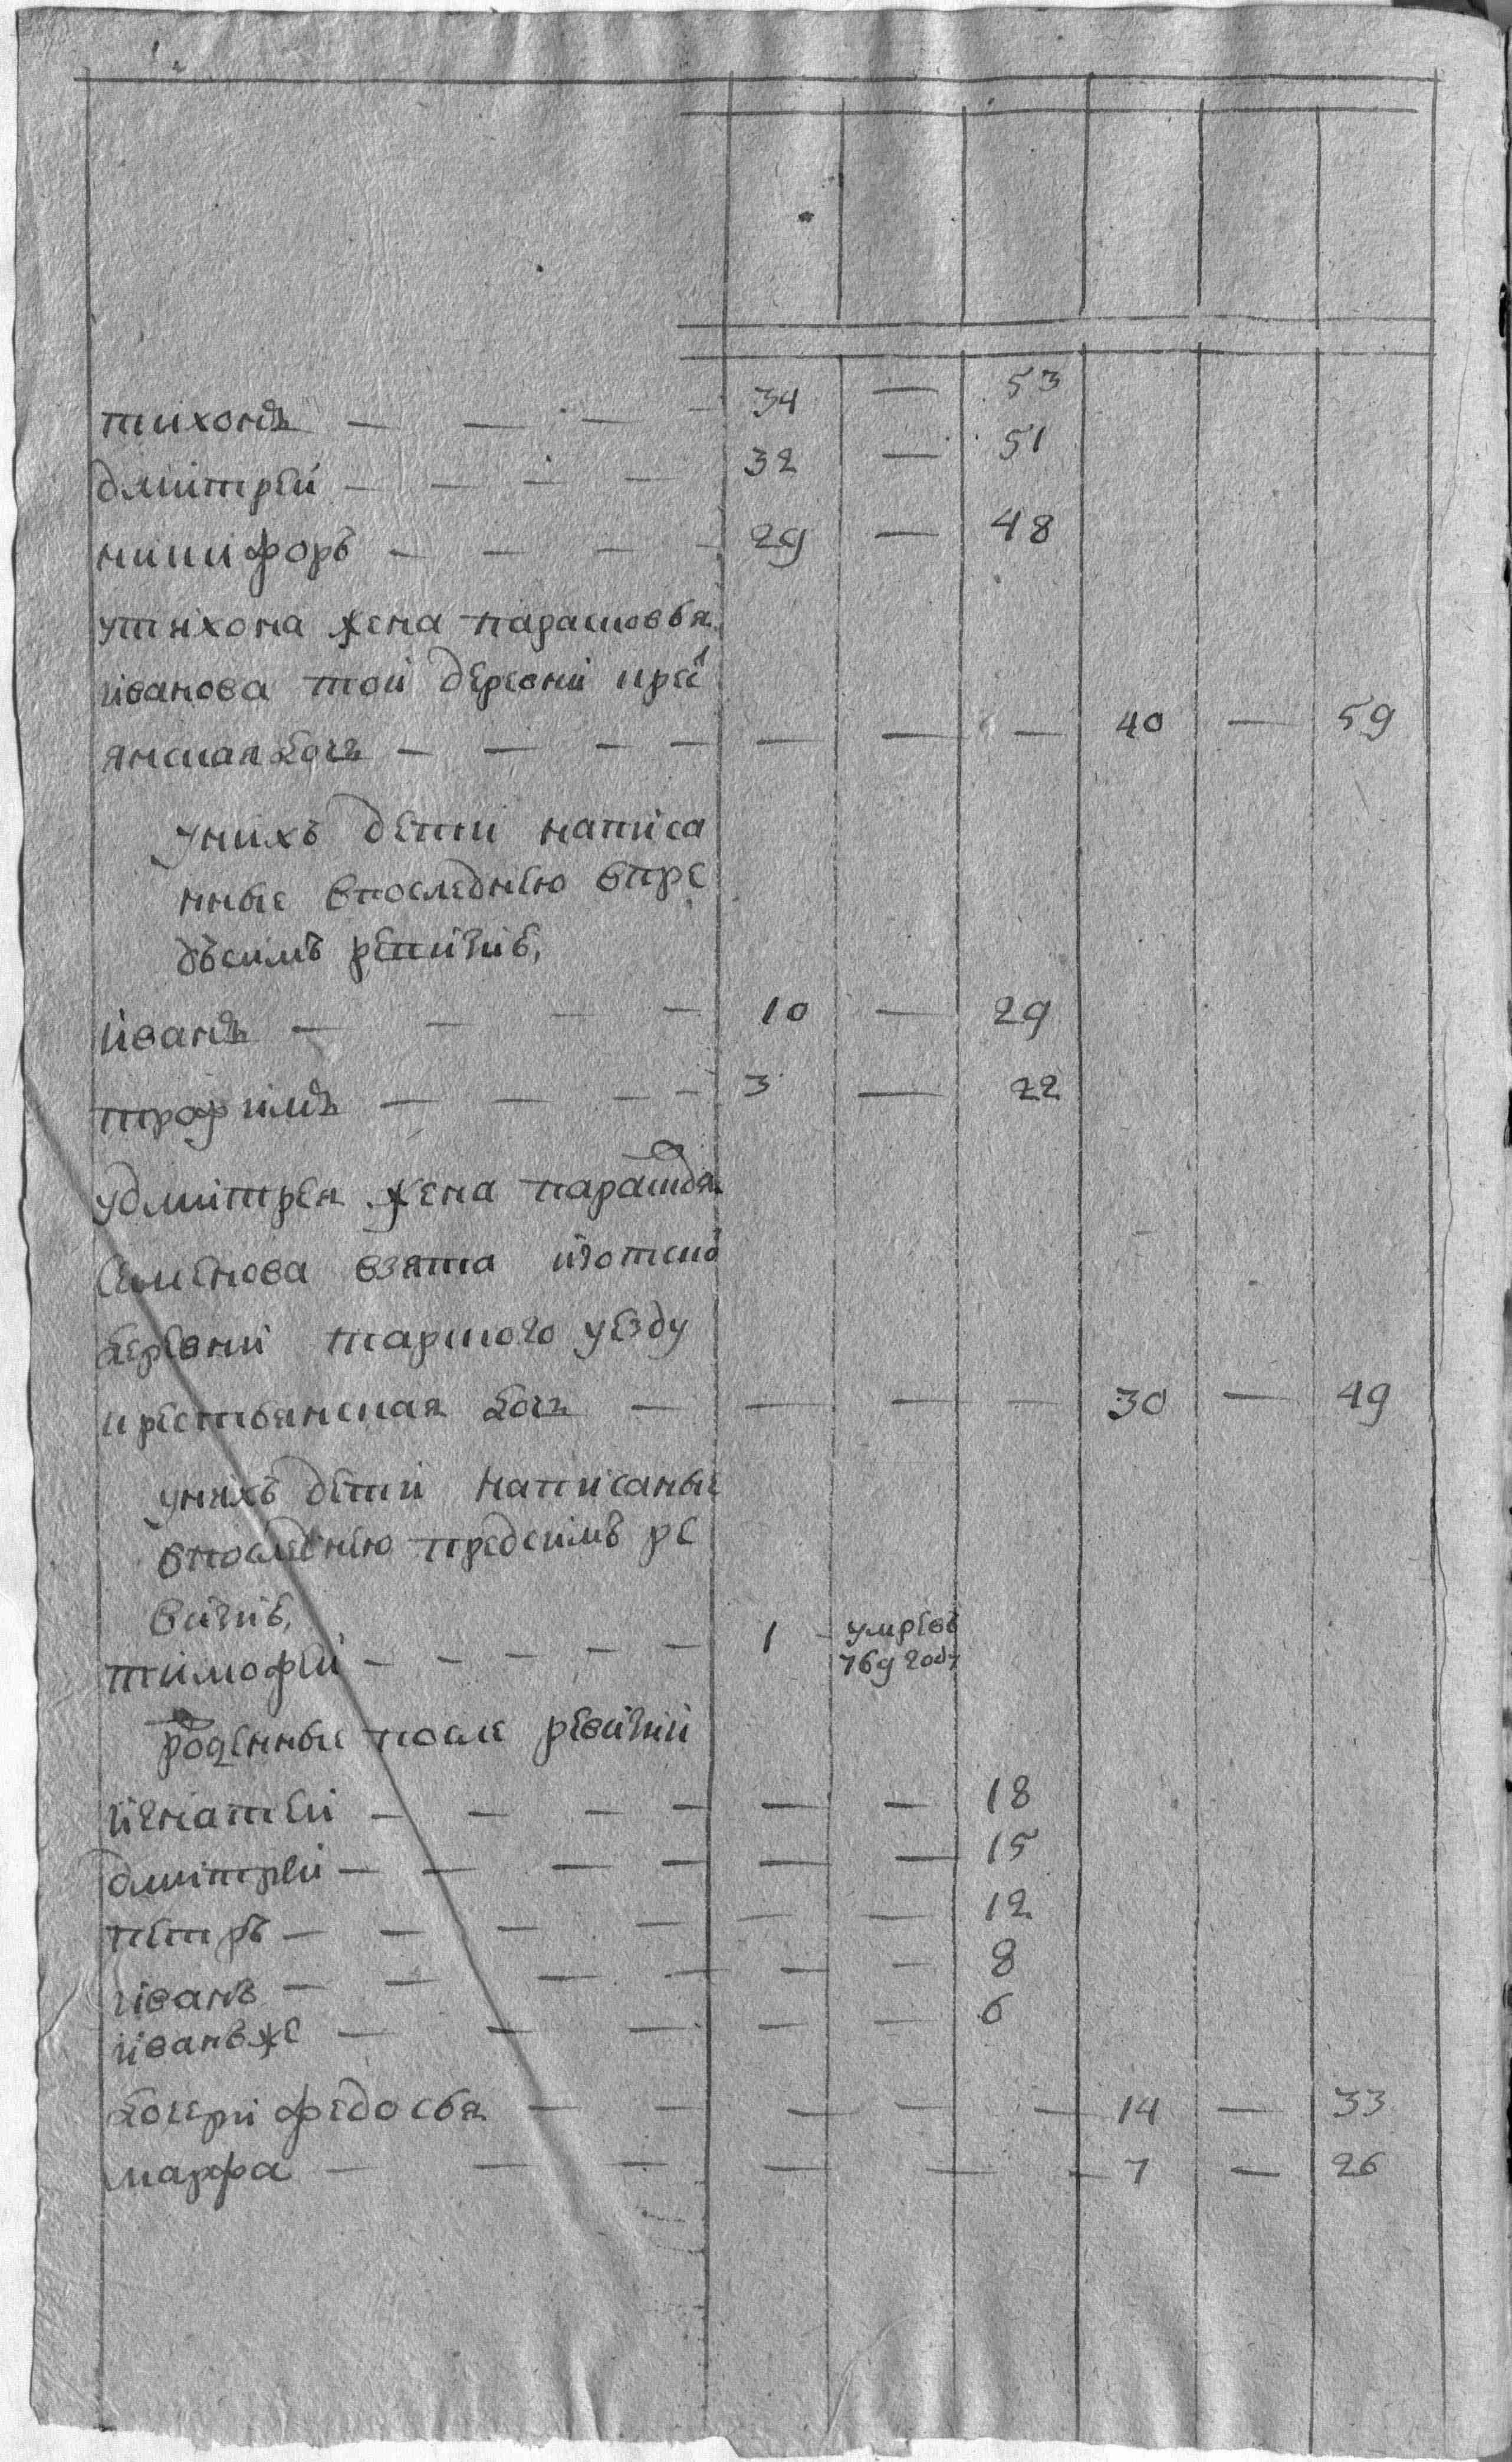 тихонъ — — — — 34 — 53
дмитрей — — — — 32 — 51
никифоръ — — — — 29 — 48
утихона жена парасковья
иванова той деревни крес
янская дочь — — — — — — — 40 — 59
унихъ дети написа
нные впоследнею впре
дъсимъ
иванъ — — — — 10 — 29
трофимъ — — — — 3 — 22
удмитрея жена
семенова взята
деревни тарского уезду
крестьянская дочь — — — — 30 — 49
унихъ дети написаные
впоследнею предсимъ ре
визиѣ,
тимофей — — — — — 1 умревъ
769 году
роженные после ревизии
игнатей — — — — — — 18
дмитрей — — — — — — 15
петръ — — — — — — 12
иванъ — — — — — — 8
иванъже — — — — — 6
дочери федосья — — — — — 14 — 33
марфа — — — — — — 7 — 26